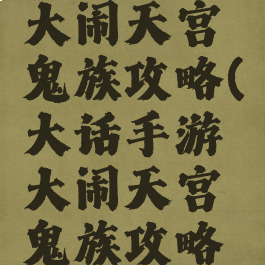 大闹天宫
鬼族攻略(
大话手游
大闹天宫
鬼族攻略